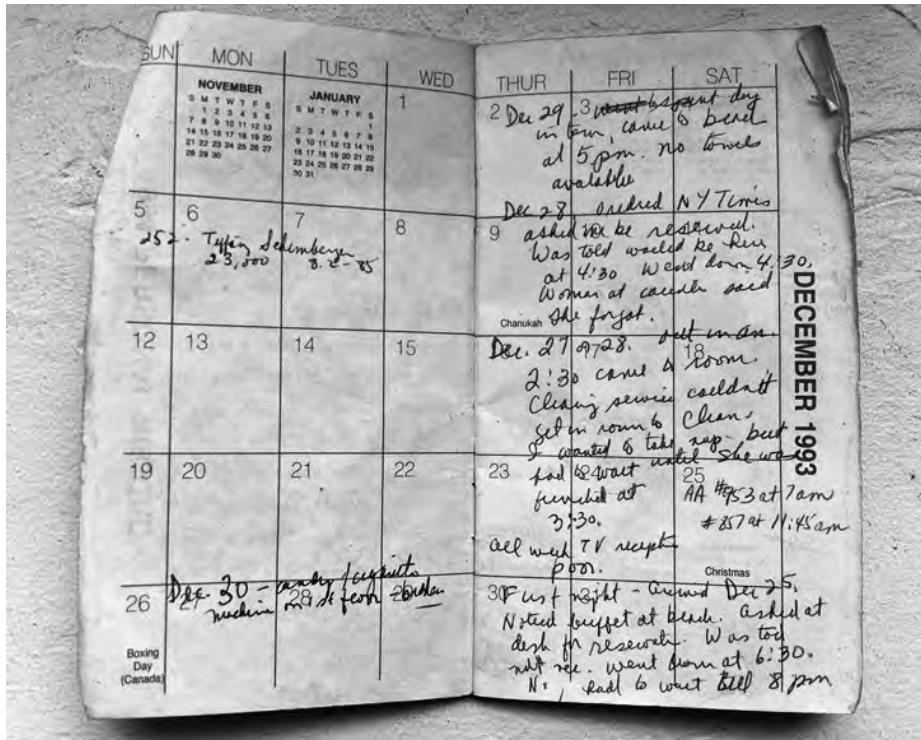 SUN MON TUES WED
NOVEMBER
S M T W T F S
1 2 3 4 5 6
7 8 9 10 11 12 13
14 15 16 17 18 19 20
21 22 23 24 25 26 27
28 29 30
JANUARY
S M T W T F S
1
2 3 4 5 6 7 8
9 10 11 12 13 14 15
16 17 18 19 20 21 22
23 24 25 26 27 28 29
30 31
1
5 6 7 8
252 - Tiffany
23,000 8.2-85
12 13 14 15
19 20 21 22
Dec. 30 - candy /
machine on 1st floor - broken
26 27 28 29
Boxing
Day
(Canada)
THUR FRI SAT
2 3
Dec 29 - spent day
in town, came to beach
at 5 pm. no towels
available
Dec 28 ordered NY Times
9
asked to be reserved.
Was told would be here
at 4:30 Went down 4:30.
Woman at said
Chanukah she forgot.
Dec. 27 or 28. out in am.
18
2:30 came to room.
Cleaning service couldn't
get in room to clean.
I wanted to take nap - but
had to wait until she was
23 25
finished at
3:30.
AA #953 at 7am
#857 at 11:45am
all week TV
poor.
Christmas
30
First night - arrived Dec 25,
Noticed buffet at beach. asked at
desk for . Was told
not nec. went down at 6:30.
No, had to wait till 8 pm
DECEMBER 1993